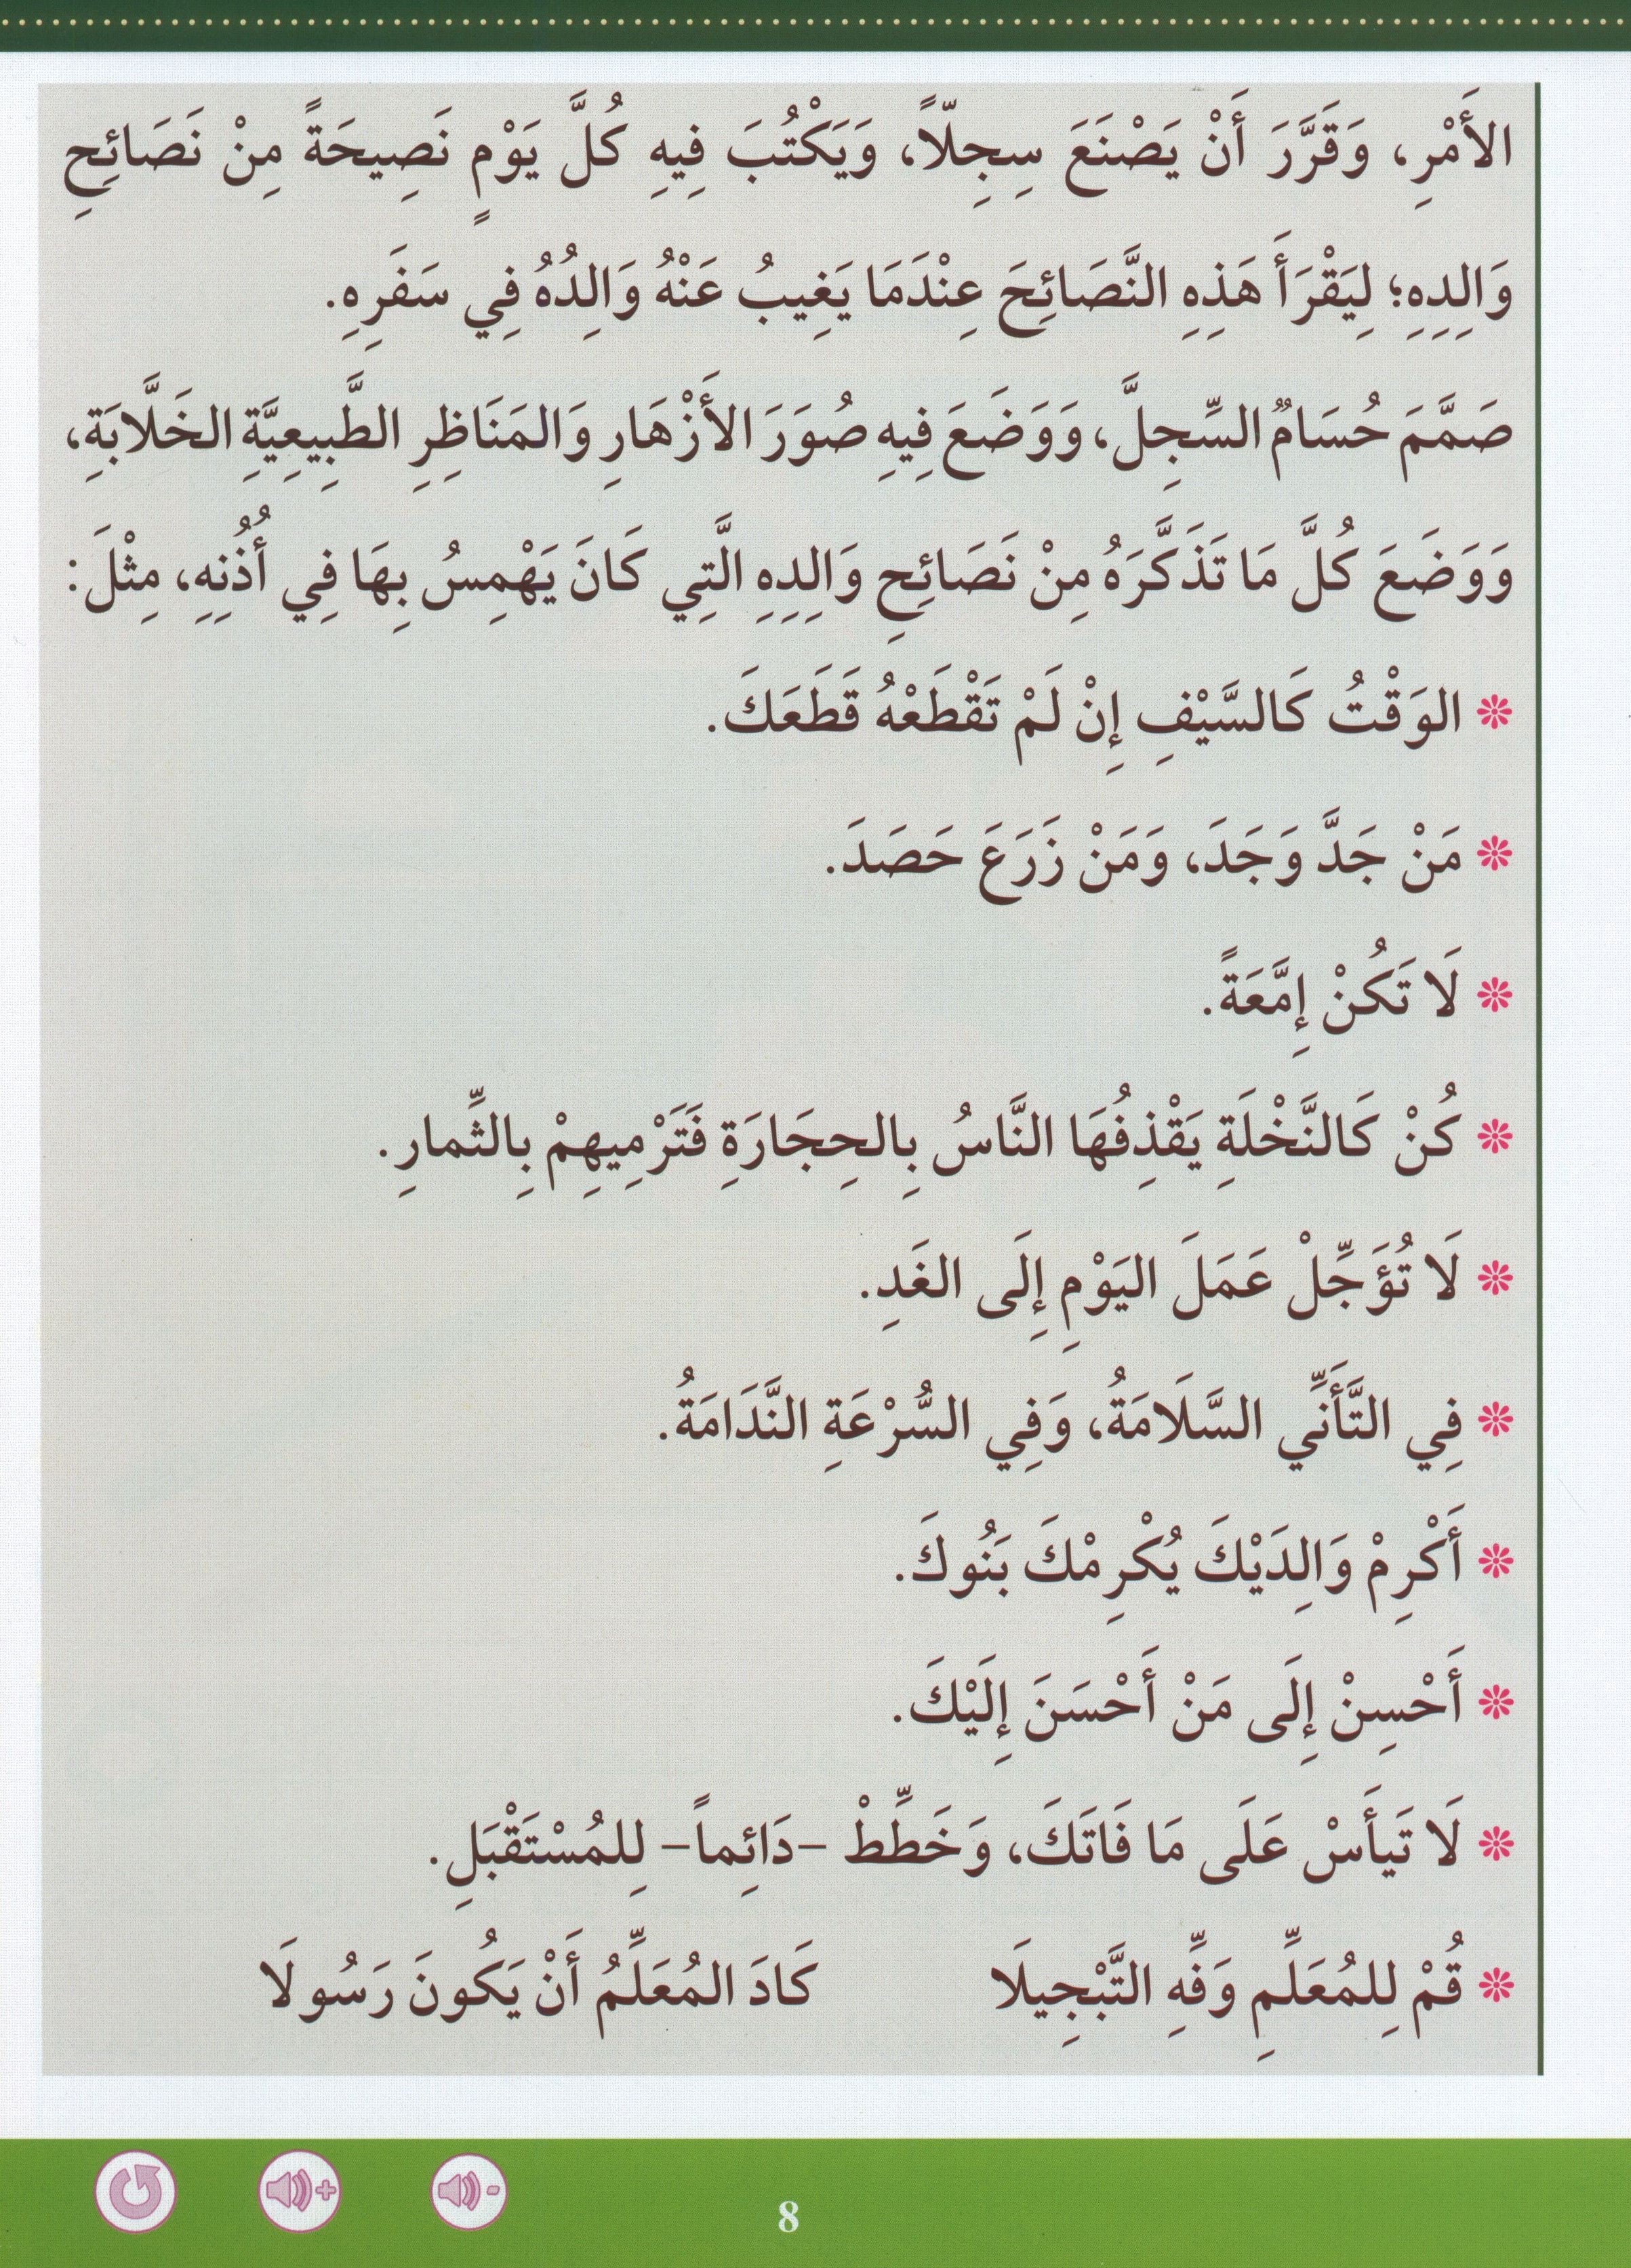 الأَمْرِ، وَقَرَّرَ أَنْ يَصْنَعَ سِجِلّاً، وَيَكْتُبَ فِيهِ كُلَّ يَوْمٍ نَصِيحَةً مِنْ نَصَائِحِ
وَالِدِهِ؛ لِيَقْرَأَ هَذِهِ النَّصَائِحَ عِنْدَمَا يَغِيبُ عَنْهُ وَالِدُهُ فِي سَفَرِهِ.
صَمَّمَ حُسَامٌ السِّجِلَّ، وَوَضَعَ فِيهِ صُوَرَ الأَزْهَارِ وَالمَنَاظِرِ الطَّبِيعِيَّةِ الخَلَّابَةِ،
وَوَضَعَ كُلَّ مَا تَذَكَّرَهُ مِنْ نَصَائِحِ وَالِدِهِ الَّتِي كَانَ يَهْمِسُ بِهَا فِي أُذُنِهِ، مِثْلَ:
❊ الوَقْتُ كَالسَّيْفِ إِنْ لَمْ تَقْطَعْهُ قَطَعَكَ.
❊ مَنْ جَدَّ وَجَدَ، وَمَنْ زَرَعَ حَصَدَ.
❊ لَا تَكُنْ إِمَّعَةً.
❊ كُنْ كَالنَّخْلَةِ يَقْذِفُهَا النَّاسُ بِالحِجَارَةِ فَتَرْمِيهِمْ بِالثِّمارِ.
❊ لَا تُؤَجِّلْ عَمَلَ اليَوْمِ إِلَى الغَدِ.
❊ فِي التَّأَنِّي السَّلَامَةُ، وَفِي السُّرْعَةِ النَّدَامَةُ.
❊ أَكْرِمْ وَالِدَيْكَ يُكْرِمْكَ بَنُوكَ.
❊ أَحْسِنْ إِلَى مَنْ أَحْسَنَ إِلَيْكَ.
❊ لَا تَيأَسْ عَلَى مَا فَاتَكَ، وَخَطِّطْ -دَائِماً- لِلمُسْتَقْبَلِ.
❊ قُمْ لِلمُعَلِّمِ وَفِّهِ التَّبْجِيلَا كَادَ المُعَلِّمُ أَنْ يَكُونَ رَسُولَا
8